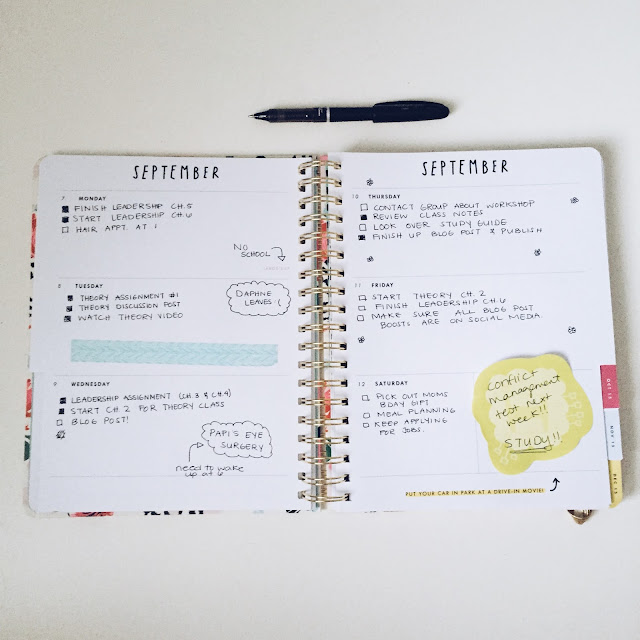 SEPTEMBER
7 MONDAY
FINISH LEADERSHIP CH.5
START LEADERSHIP CH.6
HAIR APPT. AT 1
NO
SCHOOL
8 TUESDAY
THEORY ASSIGNMENT #1
THEORY DISCUSSION POST
WATCH THEORY VIDEO
DAPHNE
LEAVES :(
9 WEDNESDAY
LEADERSHIP ASSIGNMENT (CH.3 & CH.4)
START CH.2 FOR THEORY CLASS
BLOG POST!
PAPI'S EYE
SURGERY
need to wake
up at 6
SEPTEMBER
10 THURSDAY
CONTACT GROUP ABOUT WORKSHOP
REVIEW CLASS NOTES
LOOK OVER STUDY GUIDE
FINISH UP BLOG POST & PUBLISH
11 FRIDAY
START THEORY CH.2
FINISH LEADERSHIP CH.6
MAKE SURE ALL BLOG POST
BOOSTS ARE ON SOCIAL MEDIA
12 SATURDAY
PICK OUT MOMS
BDAY GIFT
MEAL PLANNING
KEEP APPLYING
FOR JOBS.
conflict
management
test next
week!!
STUDY!!
PUT YOUR CAR IN PARK AT A DRIVE-IN MOVIE!